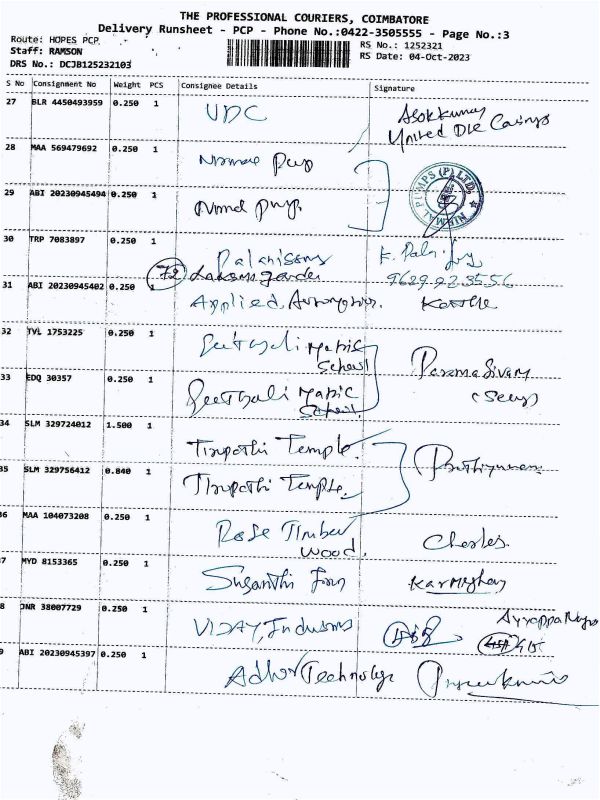 THE PROFESSIONAL COURIERS, COIMBATORE
Delivery Runsheet - PCP - Phone No.:0422-3505555 - Page No.:3
Route: HOPES PCP
Staff: RAMSON
DRS No.: DCJB125232103
RS No.: 1252321
RS Date: 04-Oct-2023
S No Consignment No Weight PCS Consignee Details Signature
27 BLR 4450493959 0.250 1 UDC Asokkumar
United Die Casings
28 MAA 569479692 0.250 1
NIRMAL PUMPS (P) LTD.
29 ABI 20230945494 0.250 1
30 TRP 7083897 0.250 1 Palanisamy K. Palani
72 9629 92 3556
31 ABI 20230945402 0.250 1 Applied
32 TVL 1753225 0.250 1 Geethanjali Matric
School
33 EDQ 30357 0.250 1 Geethanjali Matric Paramasivam
School
34 SLM 329724012 1.500 1 Tirupathi Temple
35 SLM 329756412 0.840 1 Tirupathi Temple
36 MAA 104073208 0.250 1 Rose Timber
Wood. Charles
7 MYD 8153365 0.250 1 Susanthi
8 JNR 38007729 0.250 1 VIJAY Industries
9 ABI 20230945397 0.250 1 Technology